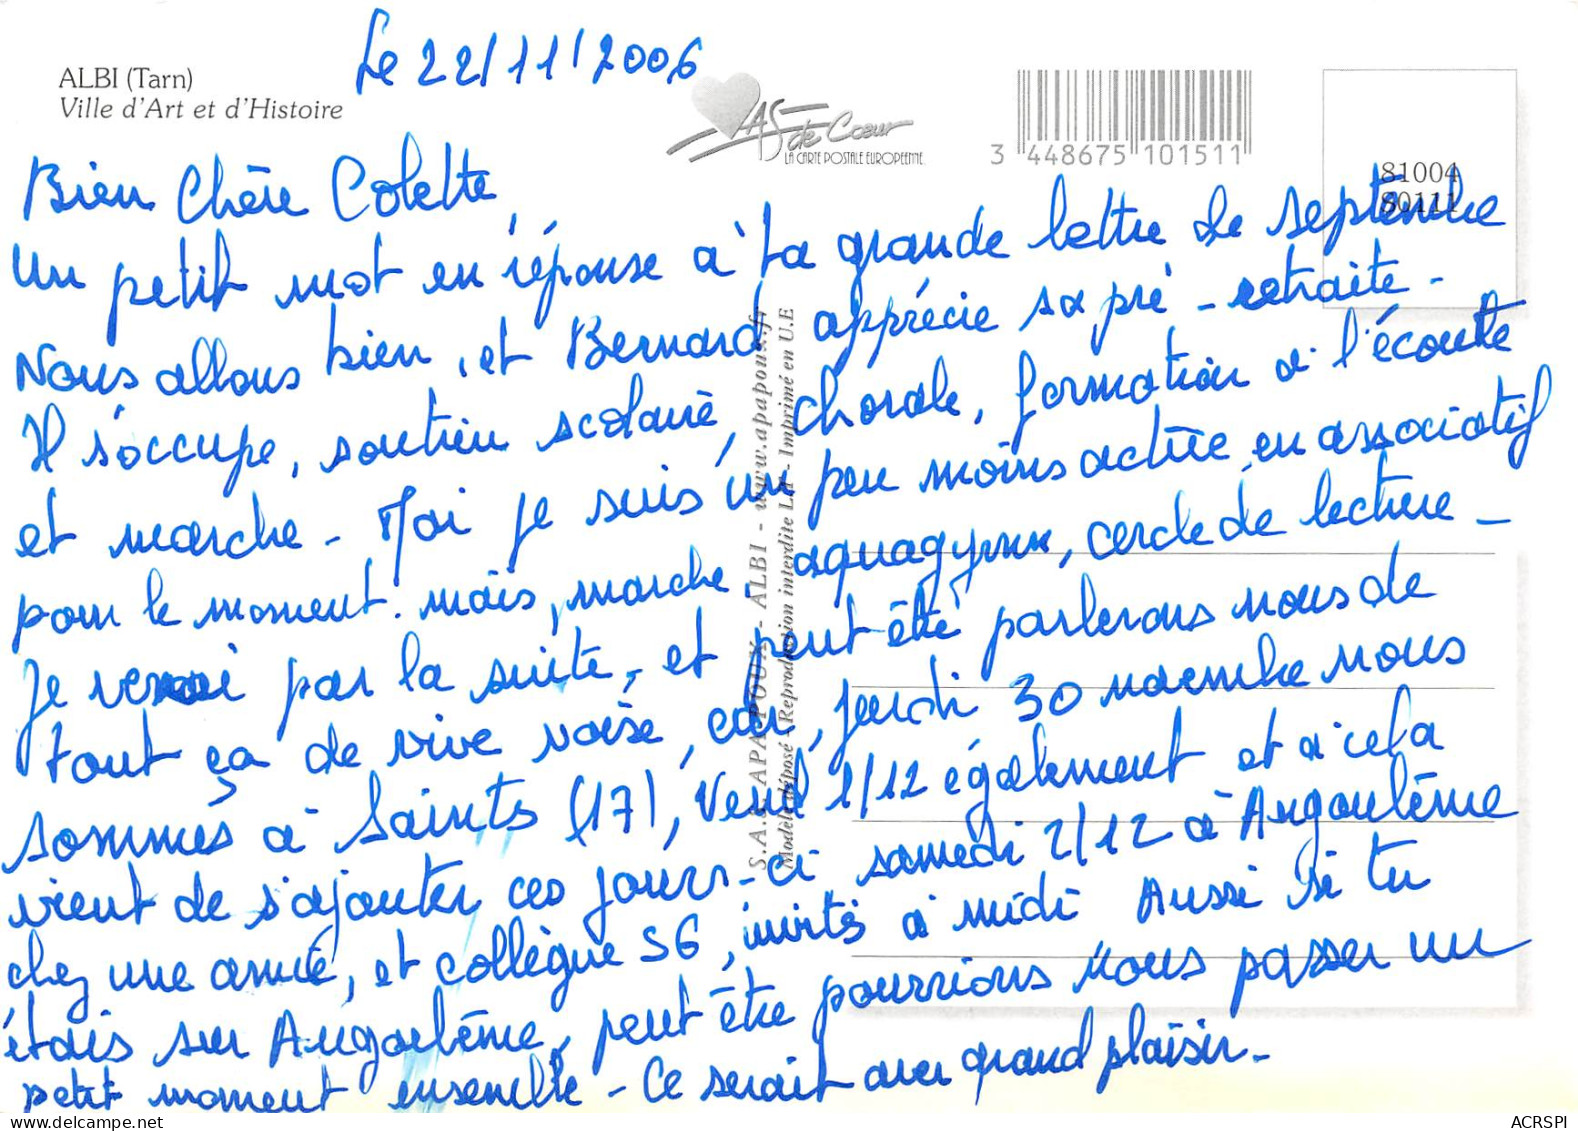 Le 22/11/2006
ALBI (Tarn)
Ville d'Art et d'Histoire
AS de Cœur
LA CARTE POSTALE EUROPEENNE
3 448675 101511
81004
80111
Bien Chère Colette,
un petit mot en réponse à ta grande lettre de septembre
Nous allons bien, et Bernard apprécie sa pré-retraite-
Il s'occupe, soutien scolaire, chorale, formation à l'écoute
et marche - Moi je suis un peu moins active en associatif
pour le moment. mais, marche, aquagym, cercle de lecture -
Je verrai par la suite, et peut être parlerons nous de
tout ça de vive voise, car, jeudi 30 novembre nous
sommes à Saintes (17), Vend 1/12 également et à cela
vient de s'ajouter ces jours-ci samedi 2/12 à Angoulême
chez une amie, et collègue SG, invités à midi Aussi si tu
étais sur Angoulême, peut être pourrions nous passer un
petit moment ensemble - Ce serait avec grand plaisir-
S.A.E. APA-POUX - ALBI - www.apapoux.fr
Modèle déposé - Reproduction interdite LA - Imprimé en U.E
ACRSPI
www.delcampe.net